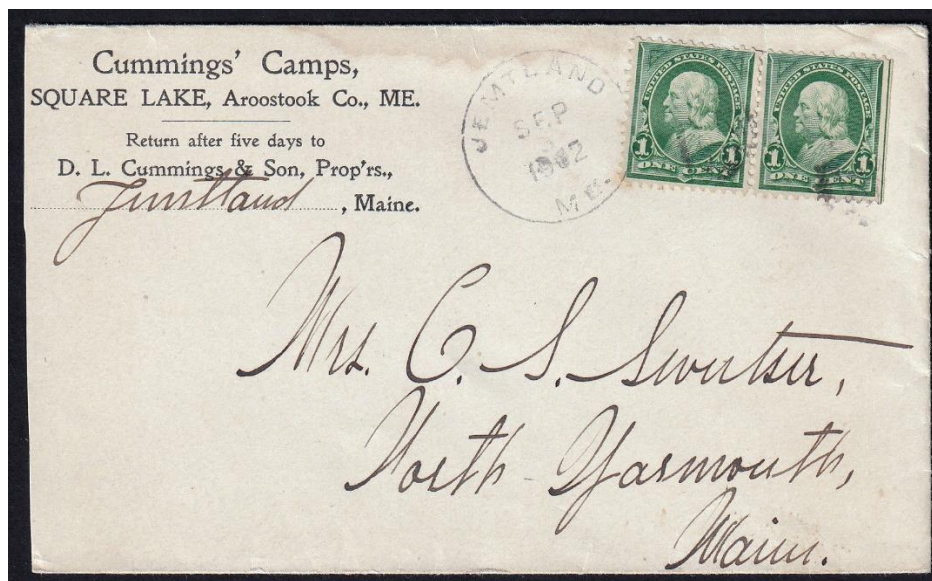 Cummings' Camps,
SQUARE LAKE, Aroostook Co., ME.
Return after five days to
D. L. Cummings & Son, Prop'rs.,
Jemtland, Maine.
JEMTLAND
SEP
1902
ME.
UNITED STATES POSTAGE
1 1
ONE CENT
UNITED STATES POSTAGE
1 1
ONE CENT
Mrs. C. S. Sweetser,
North Yarmouth,
Maine.